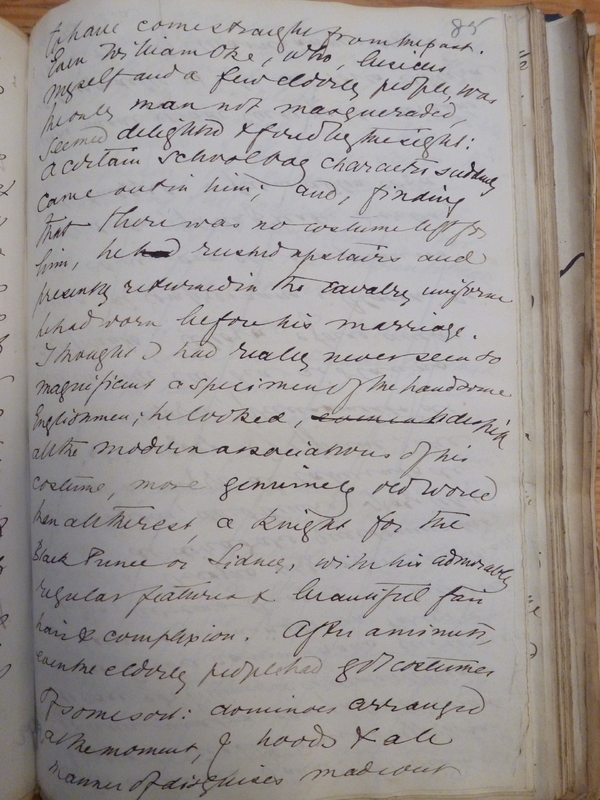 85
to have come straight from the past.
Even William Oke, who, besides
myself and a few elderly people, was
the only man not masqueraded,
seemed delighted & fired by the sight:
a certain schoolboy character suddenly
came out in him; and, finding
that there was no costume left for
him, he had rushed upstairs and
presently returned in the cavalry uniform
he had worn before his marriage.
I thought I had really never seen so
magnificent a specimen of the handsome
Englishman; he looked, despite
all the modern associations of his
costume, more genuinely old world
than all the rest, a knight for the
Black Prince or Sidney, with his admirably
regular features & beautiful fair
hair & complexion. After a minute,
even the elderly people had got costumes
of some sort: dominoes arranged
at the moment, & hoods & all
manner of disguises made out